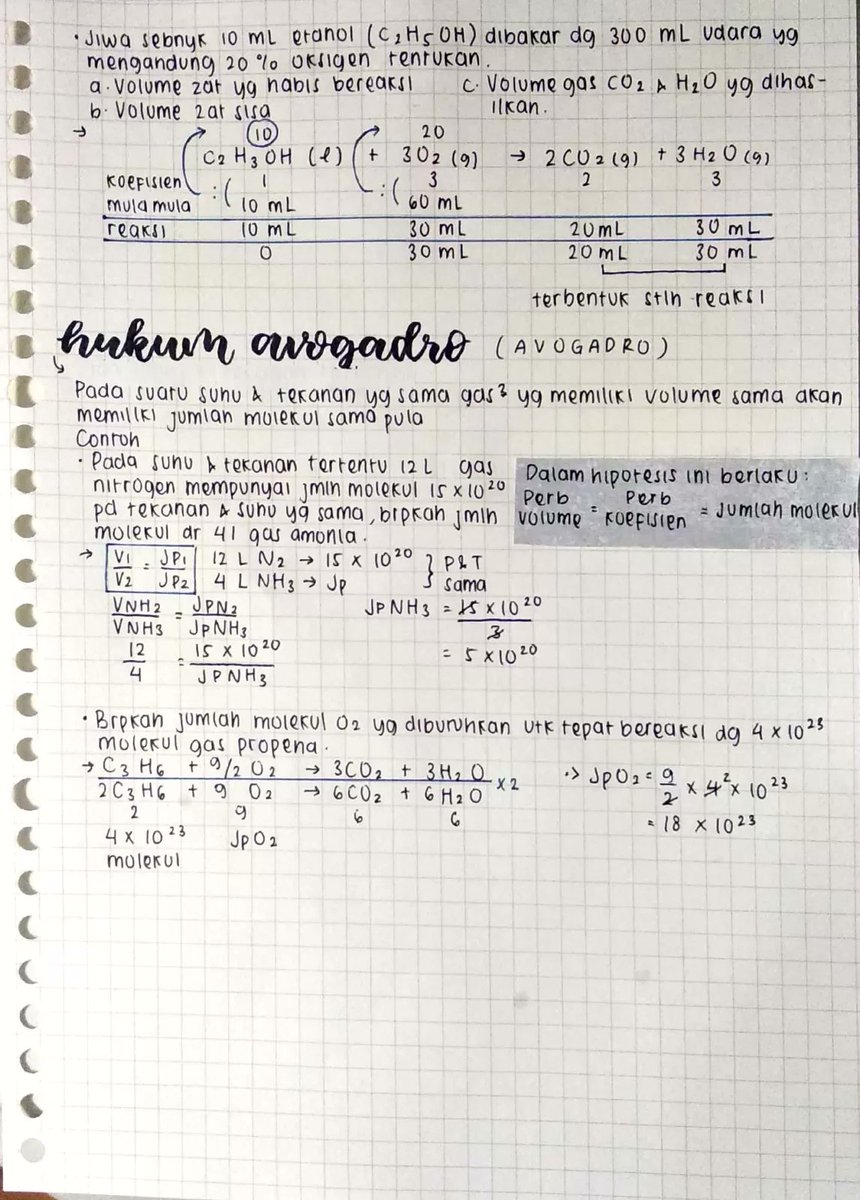 • Jiwa sebnyk 10 mL etanol (C2H5OH) dibakar dg 300 mL udara yg
mengandung 20% oksigen tentukan.
a. Volume zat yg habis bereaksi
c. Volume gas CO2 & H2O yg dihas-
ilkan.
b. Volume zat sisa
→ 10 20
C2H3OH (l) + 3O2 (g) → 2CO2 (g) + 3H2O (g)
koefisien :( 1 :( 3 2 3
mula mula 10 mL 60 mL
reaksi 10 mL 30 mL 20 mL 30 mL
0 30 mL 20 mL 30 mL
terbentuk stlh reaksi
hukum avogadro (AVOGADRO)
Pada suatu suhu & tekanan yg sama gas² yg memiliki volume sama akan
memiliki jumlah molekul sama pula
Contoh
• Pada suhu & tekanan tertentu 12 L gas
nitrogen mempunyai jmlh molekul 15 x 10²⁰
pd tekanan & suhu yg sama, brpkah jmlh
molekul dr 4l gas amonia.
Dalam hipotesis ini berlaku:
Perb volume = Perb koefisien = Jumlah molekul
→ V1/V2 = JP1/JP2 12 L N2 → 15 x 10²⁰ } P&T
4 L NH3 → Jp sama
VNH2/VNH3 = JPN2/JPNH3
JPNH3 = 15 x 10²⁰/3
12/4 = 15 x 10²⁰/JPNH3
= 5 x 10²⁰
• Brpkah jumlah molekul O2 yg dibutuhkan utk tepat bereaksi dg 4 x 10²³
molekul gas propena.
→ C3H6 + 9/2 O2 → 3CO2 + 3H2O x2
2C3H6 + 9 O2 → 6CO2 + 6H2O
2 9 6 6
4 x 10²³ JpO2
molekul
∴> JpO2 = 9/2 x 4² x 10²³
= 18 x 10²³